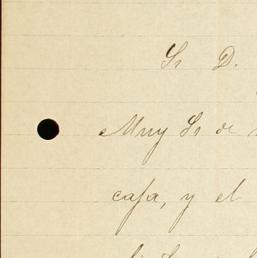 Sr D.
Muy Sr de
caja, y el